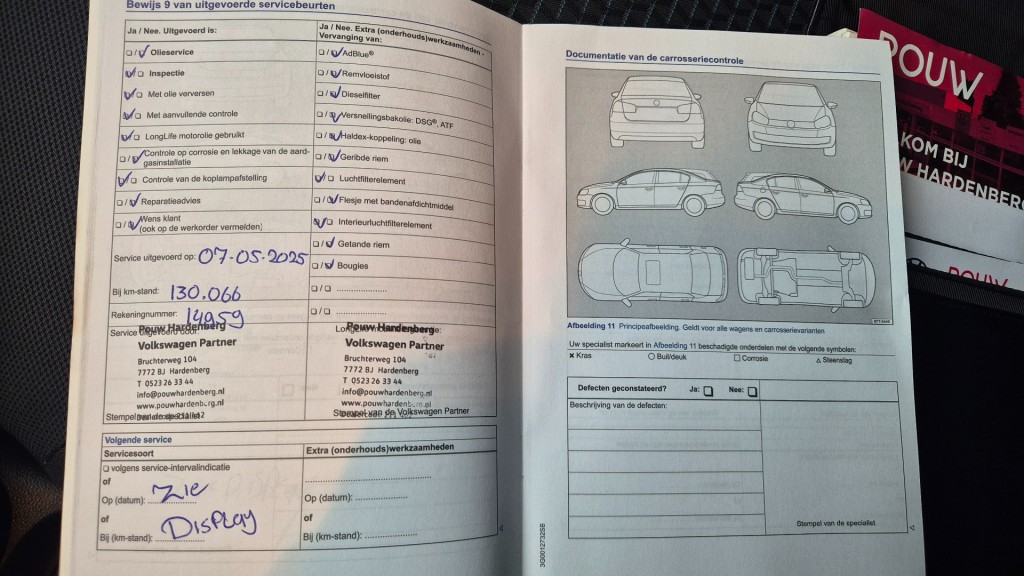 Bewijs 9 van uitgevoerde servicebeurten
Ja / Nee. Uitgevoerd is:
☐ / ☑ Olieservice
☑ / ☐ Inspectie
☑ / ☐ Met olie verversen
☑ / ☐ Met aanvullende controle
☑ / ☐ LongLife motorolie gebruikt
☐ / ☑ Controle op corrosie en lekkage van de aard-
gasinstallatie
☑ / ☐ Controle van de koplampafstelling
☐ / ☑ Reparatieadvies
☐ / ☑ Wens klant
(ook op de werkorder vermelden)
Service uitgevoerd op: 07-05-2025
Bij km-stand: 130.066
Rekeningnummer: 14959
Service uitgevoerd door:
Pouw Hardenberg
Volkswagen Partner
Bruchterweg 104
7772 BJ Hardenberg
T 0523 26 33 44
info@pouwhardenberg.nl
www.pouwhardenberg.nl
Stempel van de specialist
Ja / Nee. Extra (onderhouds)werkzaamheden -
Vervanging van:
☐ / ☑ AdBlue®
☐ / ☑ Remvloeistof
☐ / ☑ Dieselfilter
☐ / ☑ Versnellingsbakolie: DSG®, ATF
☐ / ☑ Haldex-koppeling: olie
☐ / ☑ Geribde riem
☑ / ☐ Luchtfilterelement
☐ / ☑ Flesje met bandenafdichtmiddel
☑ / ☐ Interieurluchtfilterelement
☐ / ☑ Getande riem
☐ / ☑ Bougies
☐ / ☐ ....................
☐ / ☐ ....................
Pouw Hardenberg
Volkswagen Partner
Bruchterweg 104
7772 BJ Hardenberg
T 0523 26 33 44
info@pouwhardenberg.nl
www.pouwhardenberg.nl
Stempel van de Volkswagen Partner
Volgende service
Servicesoort
☐ volgens service-intervalindicatie
of
Op (datum): Zie
of
Bij (km-stand): Display
Extra (onderhouds)werkzaamheden
....................
Op (datum): ....................
of
Bij (km-stand): ....................
Documentatie van de carrosseriecontrole
Afbeelding 11 Principeafbeelding. Geldt voor alle wagens en carrosserievarianten
Uw specialist markeert in Afbeelding 11 beschadigde onderdelen met de volgende symbolen:
× Kras ○ Buil/deuk □ Corrosie △ Steenslag
Defecten geconstateerd? Ja: ☐ Nee: ☐
Beschrijving van de defecten:
Stempel van de specialist
3G0012732SB
POUW
KOM BIJ
W HARDENBERG
POUW